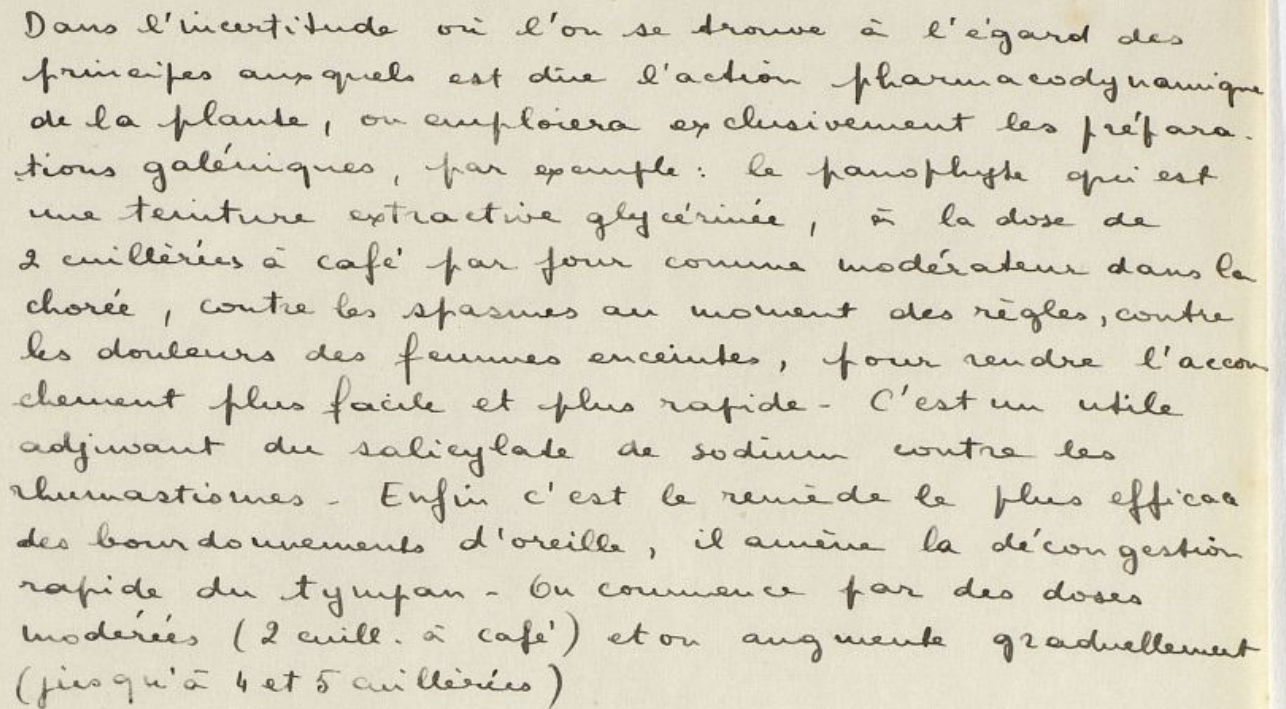 Dans l'incertitude où l'on se trouve à l'égard des
principes auxquels est due l'action pharmacodynamique
de la plante, on emploiera exclusivement les prépara-
tions galéniques, par exemple : le panophyte qui est
une teinture extractive glycérinée, à la dose de
2 cuillèrées à café par jour comme modérateur dans la
chorée, contre les spasmes au moment des règles, contre
les douleurs des femmes enceintes, pour rendre l'accou
chement plus facile et plus rapide - C'est un utile
adjuvant du salicylate de sodium contre les
rhumastismes - Enfin c'est le remède le plus efficace
des bourdonnements d'oreille, il amène la décongestion
rapide du tympan - On commence par des doses
modérées (2 cuill. à café) et on augmente graduellement
(jusqu'à 4 et 5 cuillèrées)